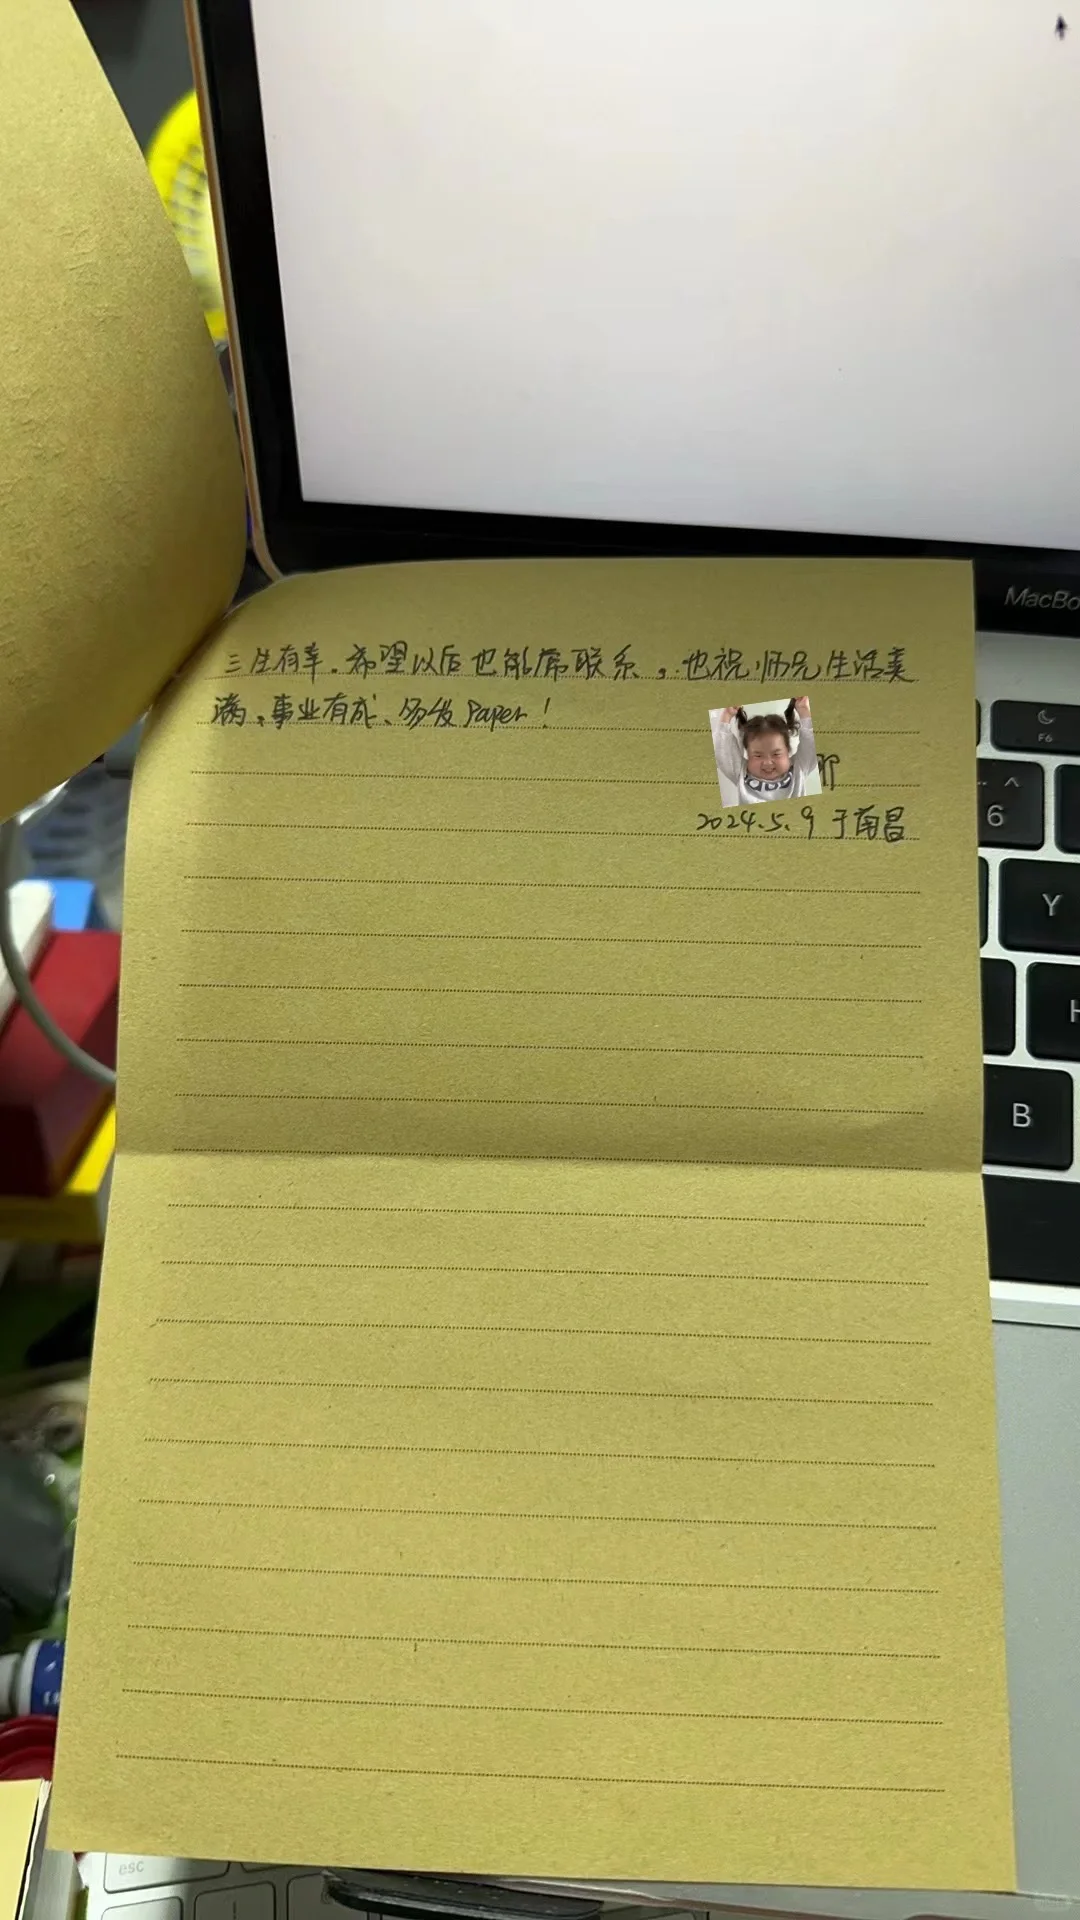 三生有幸。希望以后也能常联系,也祝师兄生活美
满,事业有成、多发Paper!
2024.5.9 于南昌
MacBo
F6
^
6
Y
H
B
esc